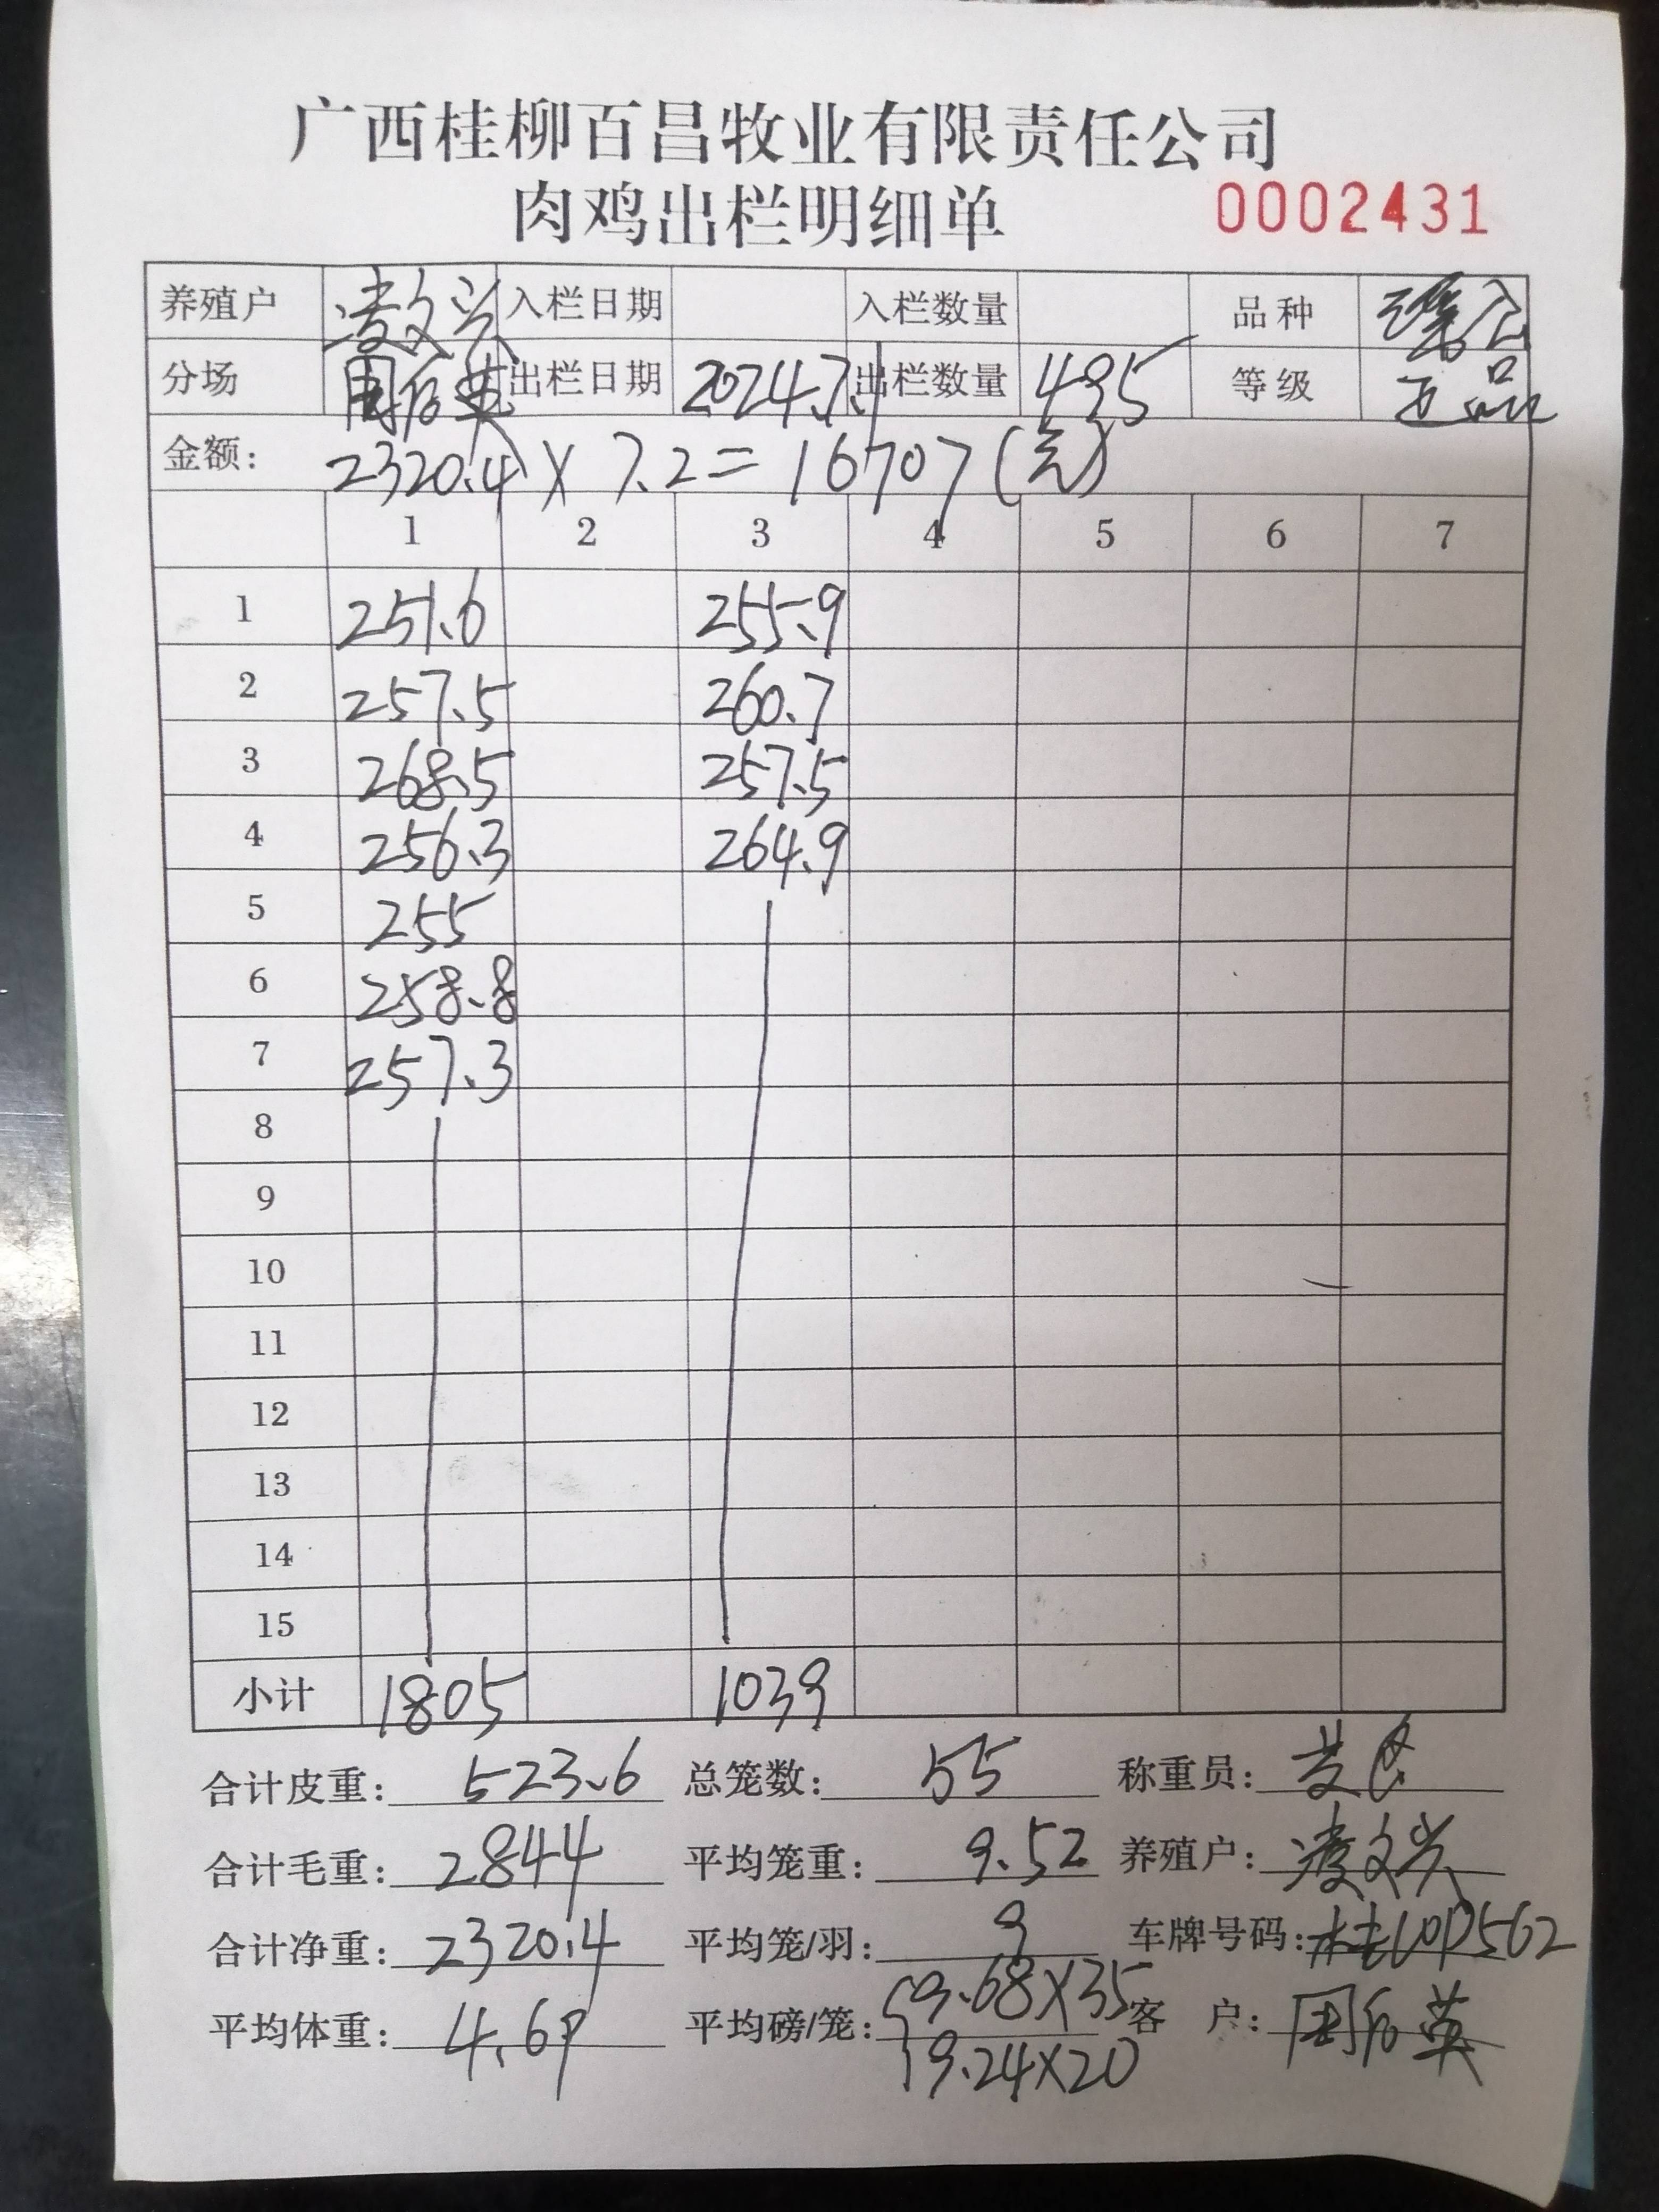 广西桂柳百昌牧业有限责任公司
肉鸡出栏明细单 0002431
养殖户 凌文兴 入栏日期 入栏数量 品种
分场 周后英 出栏日期 2024.7.1 出栏数量 495 等级 正品
金额: 2320.4 X 7.2 = 16707 (元)
1 2 3 4 5 6 7
1 251.6 255.9
2 257.5 260.7
3 268.5 257.5
4 256.3 264.9
5 255
6 258.8
7 257.3
8
9
10
11
12
13
14
15
小计 1805 1039
合计皮重: 523.6 总笼数: 55 称重员:
合计毛重: 2844 平均笼重: 9.52 养殖户: 凌文兴
合计净重: 2320.4 平均笼/羽: 9 车牌号码:
平均体重: 4.69 平均磅/笼: 9.68X35 客 户: 周后英
9.24X20